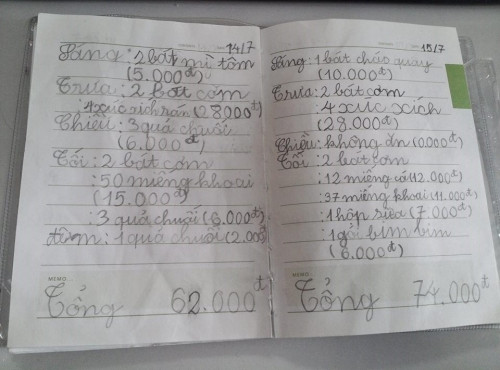 14/7
Sáng: 2 bát mì tôm
(5.000đ)
Trưa: 2 bát cơm
4 xúc xích rán (28000đ)
Chiều: 3 quả chuối
(6.000đ)
Tối: 2 bát cơm
: 50 miếng khoai
(15.000đ)
: 3 quả chuối (6.000đ)
đêm: 1 quả chuối (2.000đ)
MEMO
Tổng 62.000đ
15/7
Sáng: 1 bát cháo quẩy
(10.000đ)
Trưa: 2 bát cơm
: 4 xúc xích
(28.000đ)
Chiều: không ăn (0.000đ)
Tối: 2 bát cơm
: 12 miếng cá (12.000đ)
: 37 miếng khoai (11.000đ)
: 1 hộp sữa (7.000đ)
: 1 gói bim bim
(6.000đ)
MEMO
Tổng 74.000đ